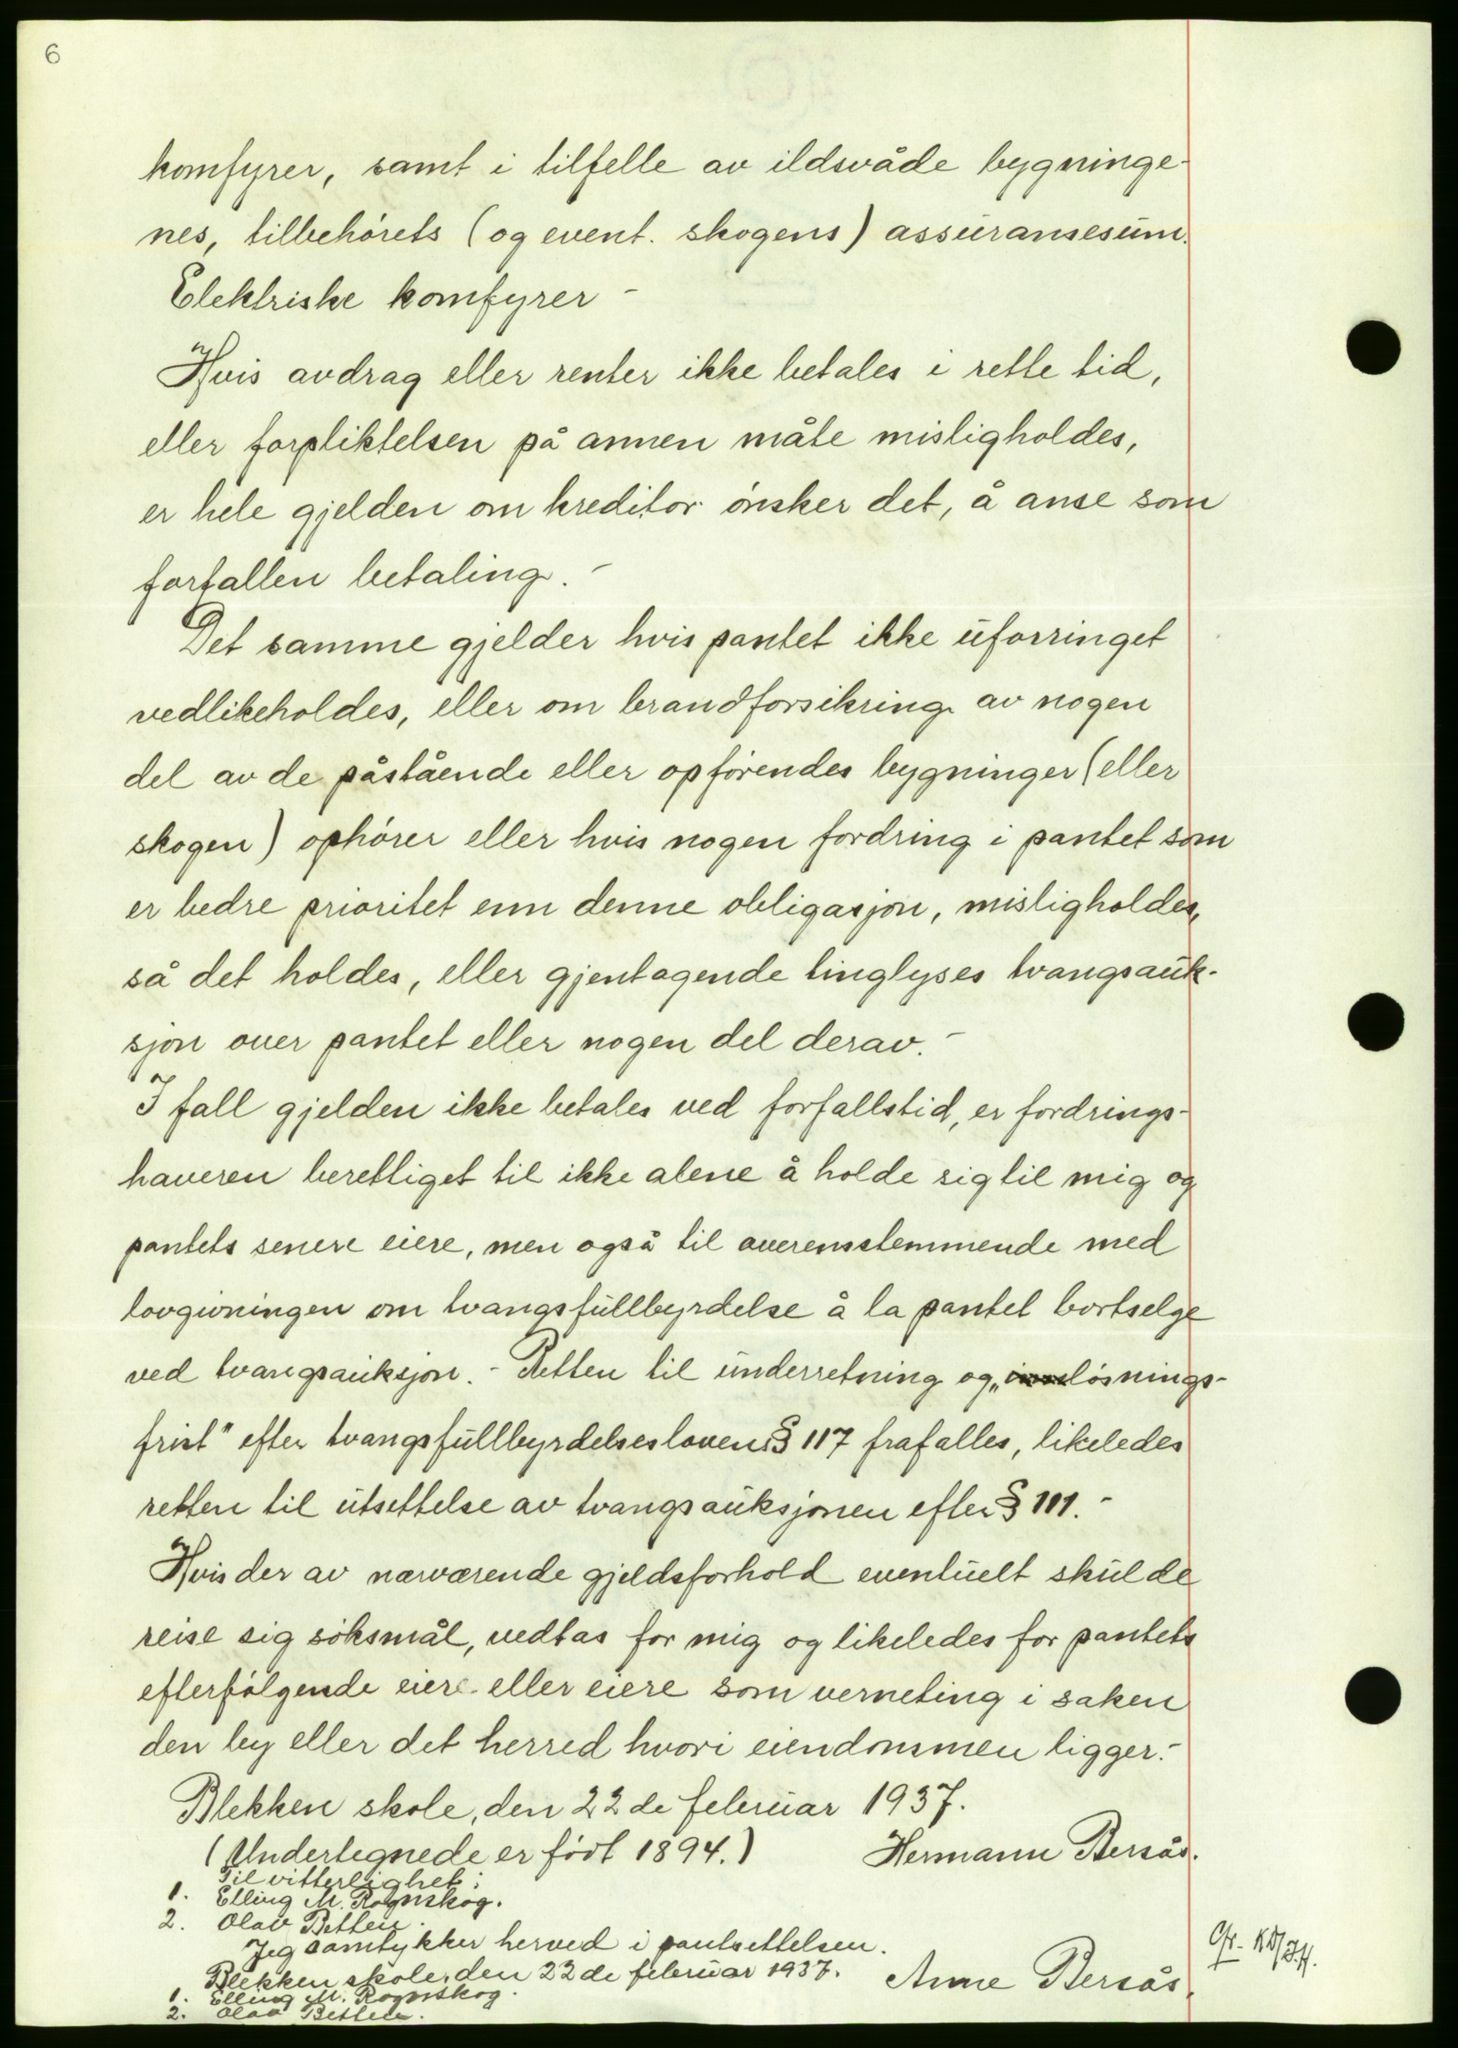 6
komfyrer, samt i tilfelle av ildsvåde bygninge-
nes, tilbehórets (og event. skogens) assuransesum.
Elektriske komfyrer -
Hvis avdrag eller renter ikke betales i rette tid,
eller forpliktelsen på annen måte misligholdes,
er hele gjelden om kreditor ónsker det, å anse som
forfallen betaling. -
Det samme gjelder hvis pantet ikke uforringet
vedlikeholdes, eller om brandforsikring av nogen
del av de påstående eller opfórendes bygninger (eller
skogen) ophórer eller hvis nogen fordring i pantet som
er bedre prioritet enn denne obligasjon, misligholdes,
så det holdes, eller gjentagende tinglyses tvangsauk-
sjon over pantet eller nogen del derav. -
I fall gjelden ikke betales ved forfallstid, er fordrings-
haveren berettiget til ikke alene å holde sig til mig og
pantets senere eiere, men også til overensstemmende med
lovgivningen om tvangsfullbyrdelse å la pantet bortselge
ved tvangsauksjon. - Retten til underretning og „lósnings-
frist" efter tvangsfullbyrdelsesloven § 117 frafalles, likeledes
retten til utsettelse av tvangsauksjonen efter § 111. -
Hvis der av nærværende gjeldsforhold eventuelt skulde
reise sig sóksmål, vedtas for mig og likeledes for pantets
efterfólgende eiere eller eiere som verneting i saken
den by eller det herred hvori eiendommen ligger. -
Blekken skole, den 22 de februar 1937.
(Undertegnede er fódt 1894.) Hermann Bersås.
Til vitterlighet:
1. Elling M. Rognskog.
2. Olav Betten.
Jeg samtykker herved i pantsettelsen.
Blekken skole, den 22 de februar 1937. Anne Bersås.
1. Elling M. Rognskog.
2. Olav Betten.